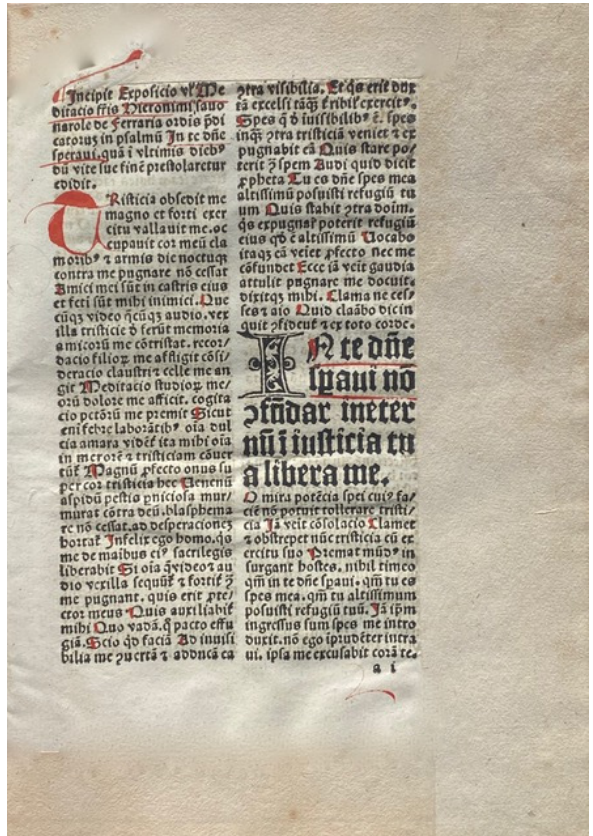 Incipit Exposicio vł Me
ditacio fr̃is Hieronimi sauo
narole de Ferraria ordīs p̄di
catorum in psalmū In te dn̄e
speraui. quā ī vltimis dieb⁹
dū vite sue finē prestolaretur
edidit.
TRisticia obsedit me
magno et forti exer
citu vallauit me. oc
cupauit cor meū cla
morib⁹ ⁊ armis die noctuq̄
contra me pugnare nō cessat
Amici mei sūt in castris eius
et fcti sūt mihi inimici. Que
cūq̄ video q̄cūq̄ audio. vex
illa tristicie d̄ ferūt memoria
amicorū me cōtristat. recor/
dacio filioꝝ me affligit cōsi/
deracio claustri ⁊ celle me an
git Meditacio studioꝝ me/
orū dolore me afficit. cogita
cio pctōrū me premit Sicut
eni febre laborātib⁹ oīa dul
cia amara vidēt̄ ita mihi oīa
in merorē ⁊ tristiciam cōuer
tūt̄ Magnū ꝓfecto onus su
per cor tristicia hec Uenenū
aspidū pestis ꝑniciosa mur/
murat cōtra deū. blasphema
re nō cessat. ad desperacionez
hortat̄ Infelix ego homo. q̄s
me de maībus ei⁹ sacrilegis
liberabit Si oīa q̄ video ⁊ au
dio vexilla sequūt̄ ⁊ fortit̄ ꝯ̄
me pugnant. quis erit ꝓte/
ctor meus Quis auxiliabit̄
mihi Quo vadā. q̄ pacto effu
giā. Scio qd̄ faciā Ad inuisi
bilia me ꝯuertā ⁊ adducā ea
ꝯtra visibilia. Et q̄s erit dux
tā excelsi tāq̄ t̄ribił exercit⁹.
Spes q̄ d̄ īuisibilib⁹ ē. spes
inq̄ ꝯtra tristiciā veniet ⁊ ex
pugnabit eā Quis stare po/
terit ꝯ̄ spem Audi quid dicit
ꝓpheta Tu es dn̄e spes mea
altissimū posuisti refugiū tu
um Quis stabit ꝯtra doīm.
q̄s expugnar̄ poterit refugiū
eius qd̄ ē altissimū Uocabo
itaq̄ eā veīet ꝓfecto nec me
cōfundet Ecce iā veīt gaudia
attulit pugnare me docuit.
dixitq̄ mihi. Clama ne ces/
ses ⁊ aio Quid claābo dic in
quit ꝯfident̄ ⁊ ex toto corde.
IN te dn̄e
sꝑaui nō
ꝯfūdar ineter
nū ī iusticia tu
a libera me.
O mira potēcia spei cui⁹ fa/
ciē nō potuit tollerare tristi/
cia Jā veīt cōsolacio Clamet
⁊ obstrepet nūc tristicia cū ex
ercitu suo Premat mūd⁹ in
surgant hostes. nihil timeo
qm̄ in te dn̄e sꝑaui. qm̄ tu es
spes mea. qm̄ tu altissimum
posuisti refugiū tuū. Jā ip̄m
ingressus sum spes me intro
duxit. nō ego īprudēter intra
ui. ipsa me excusabit corā te.
a i